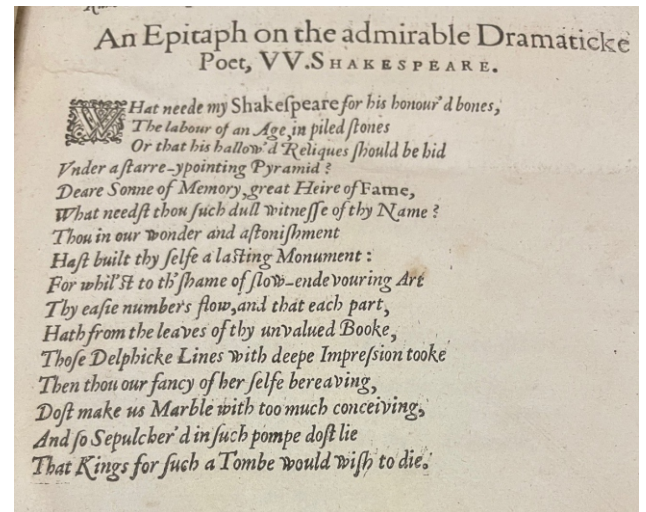 An Epitaph on the admirable Dramaticke
Poet, VV.SHAKESPEARE.
WHat neede my Shakeſpeare for his honour'd bones,
The labour of an Age, in piled ſtones
Or that his hallow'd Reliques ſhould be hid
Vnder a ſtarre-ypointing Pyramid?
Deare Sonne of Memory, great Heire of Fame,
What needſt thou ſuch dull witneſſe of thy Name?
Thou in our wonder and aſtoniſhment
Haſt built thy ſelfe a laſting Monument:
For whil'ſt to th' ſhame of ſlow-endevouring Art
Thy eaſie numbers flow, and that each part,
Hath from the leaves of thy unvalued Booke,
Thoſe Delphicke Lines with deepe Impreſsion tooke
Then thou our fancy of her ſelfe bereaving,
Doſt make us Marble with too much conceiving,
And ſo Sepulcher'd in ſuch pompe doſt lie
That Kings for ſuch a Tombe would wiſh to die.